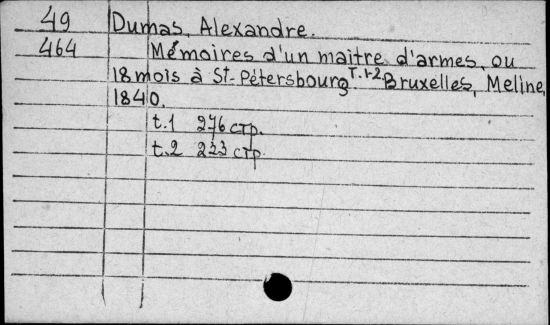 49 Dumas, Alexandre.
464 Mémoires d'un maitre d'armes, ou
18 mois à St-Pétersbourg T.1-2 Bruxelles, Meline,
1840.
t.1 276 стр.
t.2 223 стр.